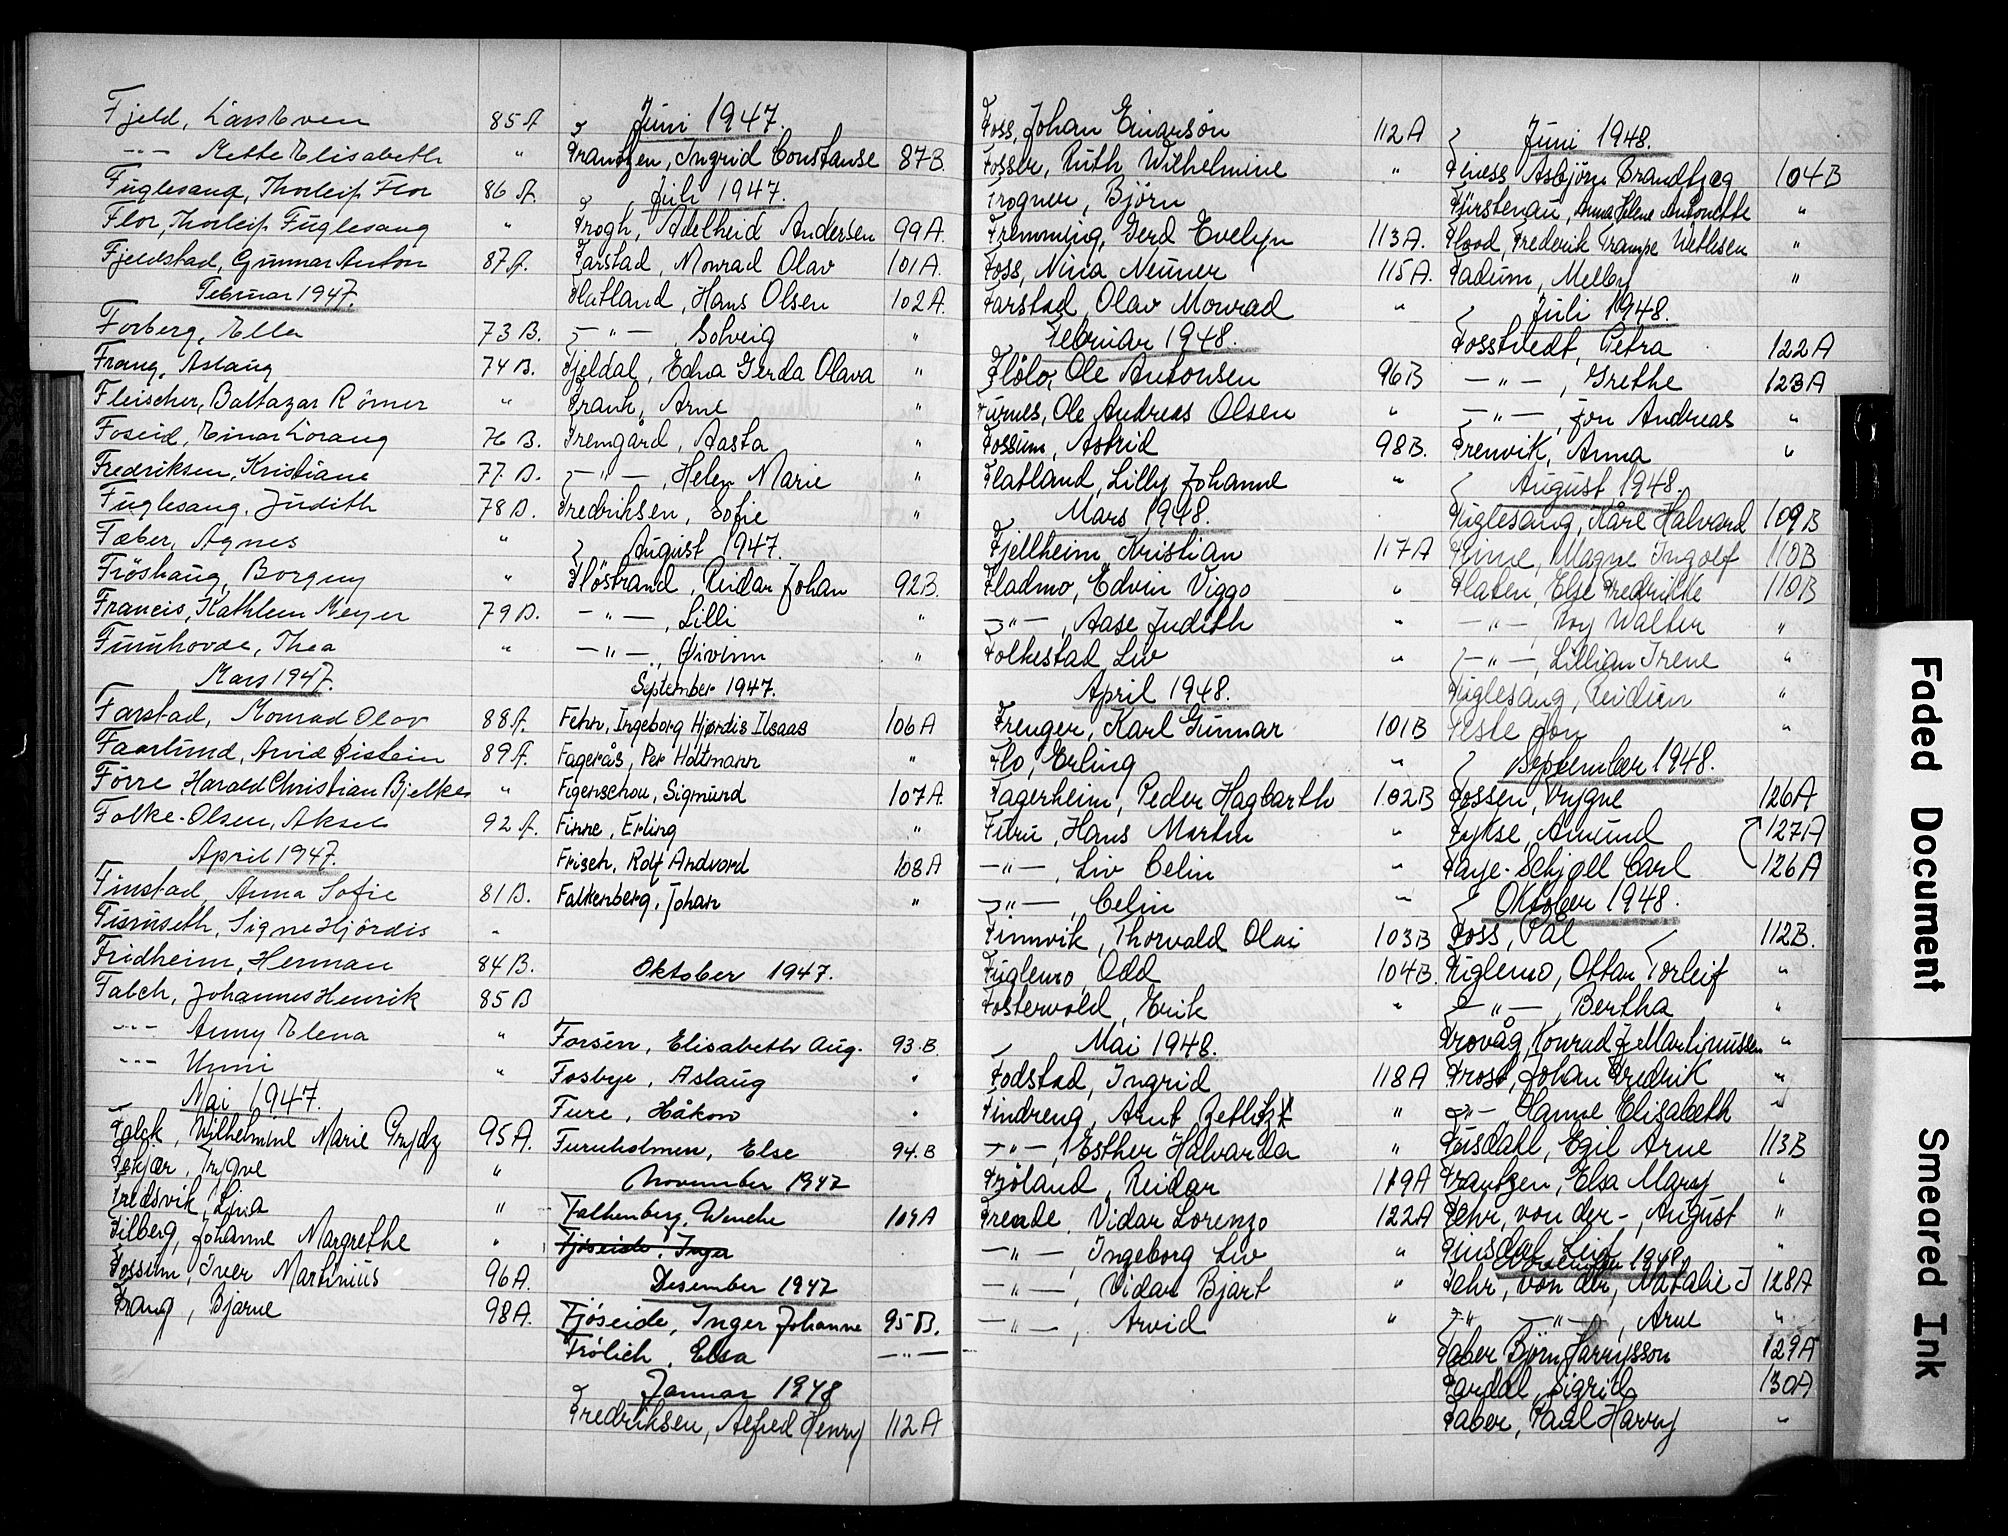 Fjeld, Lars Even 85 A
-"- Mette Elisabeth "
Fuglesang, Thorleif Flor 86 A.
Flor, Thorleif Fuglesang "
Fjeldstad, Gunnar Anton 87 A.
Februar 1947.
Forberg, Ella 73 B.
Frang, Aslaug 74 B.
Fleischer, Baltazar Römer "
Foseid, Einar Lorang 76 B.
Fredriksen, Kristiane 77. B.
Fuglesang, Judith 78 B.
Fæber, Agnes "
Fröshaug, Borgny "
Francis, Kathleen Meyer 79 B.
Furuhovde, Thea "
Mars 1947.
Farstad, Monrad Olav 88 A.
Faarlund, Arvid Øistein 89 A.
Förre Harald Christian Bjelke "
Folke-Olsen, Aksel 92 A.
April 1947.
Finstad, Anna Sofie 81 B.
Furuseth, Signe Hjördis "
Fridheim, Herman 84 B.
Falch, Johannes Henrik 85 B
-"- Anny Elena "
-"- Unni "
Mai 1947.
Falck, Wilhelmine Marie Prydz 95 A.
Fekjær, Trygve "
Fredsvik, Lina "
Filberg, Johanne Margrethe "
Fossum, Iver Martinius 96 A.
Frang, Bjarne 98 A.
Juni 1947.
Frantzen, Ingrid Constanse 87 B.
Juli 1947.
Frogh, Adelheid Andersen 99 A.
Farstad, Monrad Olav 101 A.
Flatland, Hans Olsen 102 A.
-"-, Solveig "
Fjeldal, Edna Gerda Olava "
Frank, Arne "
Fremgård, Aasta "
-"-, Helen Marie "
Fredriksen, Sofie "
August 1947.
Flöstrand, Reidar Johan 92 B.
-"-, Lilli "
-"-, Øivinn "
September 1947.
Fehn, Ingeborg Hjørdis Ilsaas 106 A
Fagerås, Per Holtmann "
Figenschou, Sigmund 107 A.
Finne, Erling "
Frisch, Rolf Andvord 108 A
Falkenberg, Johan "
Oktober 1947.
Forsén, Elisabeth Aug. 93. B.
Fosbye, Aslaug "
Fure, Håkon "
Furuholmen, Else 94. B
November 1947
Falkenberg, Wenche 109 A
Fjöseide, Inger
Desember 1947
Fjöseide, Inger Johanne 95 B.
Frölich, Elsa -"-
Januar 1948
Fredriksen, Alfred Henry 112 A
Foss, Johan Einarson 112 A
Fosser, Ruth Wilhelmine "
Frogner, Björn
Fremming, Gerd Evelyn 113 A.
Foss, Nina Neuner 115 A.
Farstad, Olav Monrad "
Februar 1948.
Flölo, Ole Antonsen 96 B
Furnes, Ole Andreas Olsen "
Fossum, Astrid 98 B.
Flatland, Lilly Johanne "
Mars 1948.
Fjellheim, Kristian 117 A
Fladmo, Edvin Viggo "
-"-, Aase Judith "
Folkestad, Liv "
April 1948.
Frenger, Karl Gunnar 101 B
Flo, Erling "
Fagerheim, Peder Hagbarth 102 B
Furu, Hans Martin "
-"-, Liv Celin "
-"-, Celin "
Finnvik, Thorvald Olai 103 B
Fuglemo, Odd 104 B.
Fostervold, Erik "
Mai 1948.
Fodstad, Ingrid 118 A
Findreng, Arnt "
-"-, Esther Halvarda "
Fröland, Reidar 119 A
Frende, Vidar Lorenzo 122 A
-"-, Ingeborg Liv "
-"-, Vidar Bjart "
-"-, Arvid "
Juni 1948.
Finess Asbjörn Brandtzæg 104 B
Fürstenau, Anna Helene Antonette "
Flood, Frederik Trampe Wethlesen "
Fadum, Melby "
Juli 1948.
Fosstvedt, Petra 122 A
-"-, Grethe 123 A
-"-, Jon Andreas "
Frenvik, Anna "
August 1948.
Fuglesang, Kåre Halvard 109 B
Finne, Magne Ingolf 110 B
Flaten, Else Fredrikke 110 B
-"-, Roy Walter "
-"-, Lillian Irene "
Fuglesang, Reidun "
Feste Jon "
September 1948.
Fossen, Trygve 126 A
Fykse, Amund 127 A
Faye-Schjøll Carl 126 A
Oktober 1948.
Foss, Pål 112 B.
Fuglemo, Ottar Torleif "
-"-, Bertha "
Frovåg, Konrad J. Martinussen "
Frost, Johan Fredrik "
-"- Hanne Elisabeth "
Fusdahl, Egil Arne 113 B
Frantzen, Elsa Mary "
Fehr, von der-, August "
Finsdal Leif "
November 1948
Fehr, von der, Natalie J 128 A
-"- -"-, Arne "
Faber Björn Harrysson 129 A
Fardal, Sigrid 130 A
Faber, Paul Harry "
Faded Document
Smeared Ink